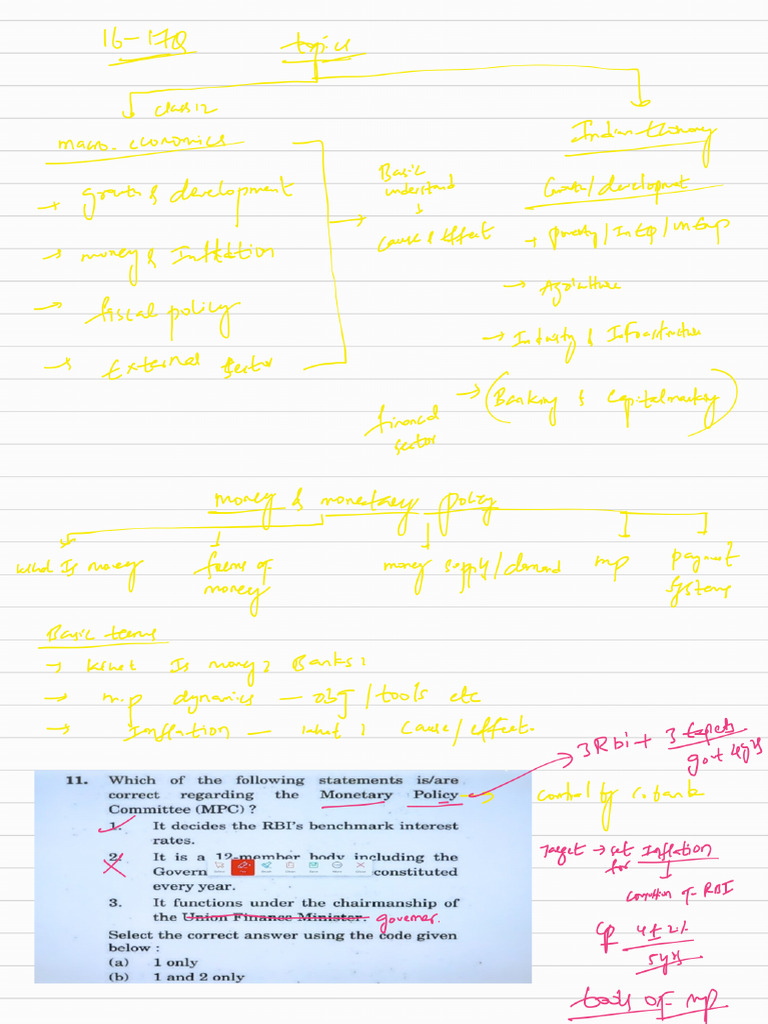 16-17Q
topics
class 12
macro-economics
Indian Economy
→ growth & development
Basic
understand
cause & effect
Growth/development
→ money & Inflation
→ fiscal policy
→ Agriculture
→ Industry & Infrastructure
→ External sector
→ (Banking & capital market)
financial
sector
money & monetary policy
what is money
forms of
money
money supply/demand
mp
payment
systems
Basic terms
→ what is money? Banks?
→ m.p dynamics – obj/tools etc
→ Inflation – what? cause/effect.
→ 3 Rbi + 3
govt 4 yrs
11. Which of the following statements is/are
correct regarding the Monetary Policy
Committee (MPC) ?
control by c. bank
1. It decides the RBI's benchmark interest
rates.
2. It is a 12-member body including the
Govern constituted
every year.
Target → set Inflation
for
of RBI
3. It functions under the chairmanship of
the Union Finance Minister. governer.
Select the correct answer using the code given
below :
4 ± 2%
5 yrs
(a) 1 only
(b) 1 and 2 only
tools of mp